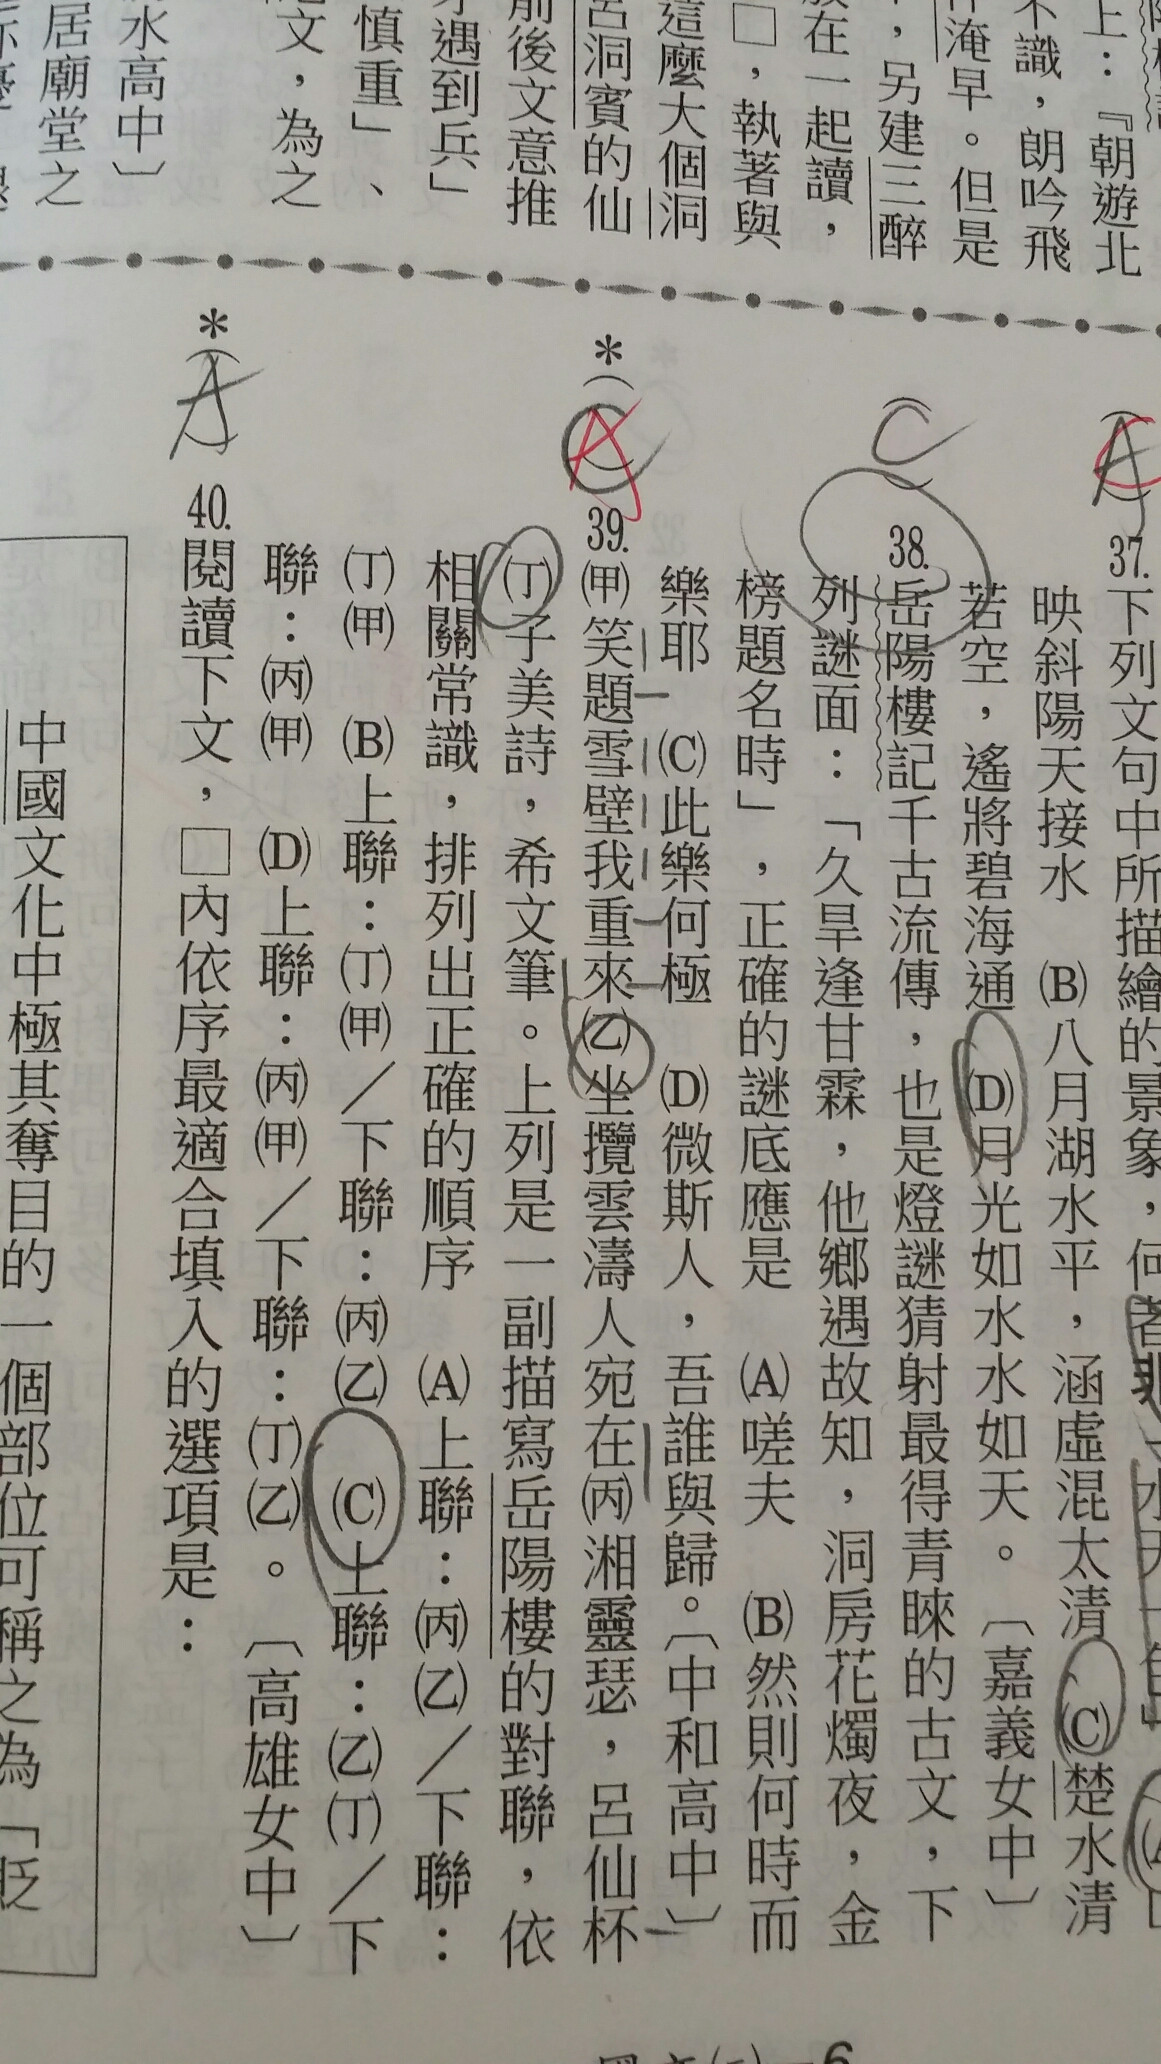 上：『朝遊北
不識，朗吟飛
淹早。但是
，另建三醉
放在一起讀，
□，執著與
這麼大個洞
呂洞賓的仙
前後文意推
遇到兵」
慎重」、
文，為之
水高中〕
居廟堂之
＊(A)
＊(C)A
C
A
37.下列文句中所描繪的景象，何者非「水天一色」
映斜陽天接水　(B)八月湖水平，涵虛混太清　(C)楚水清
若空，遙將碧海通　(D)月光如水水如天。〔嘉義女中〕
38.岳陽樓記千古流傳，也是燈謎猜射最得青睞的古文，下
列謎面：「久旱逢甘霖，他鄉遇故知，洞房花燭夜，金
榜題名時」，正確的謎底應是　(A)嗟夫　(B)然則何時而
樂耶　(C)此樂何極　(D)微斯人，吾誰與歸。〔中和高中〕
39.(甲)笑題雪壁我重來(乙)坐攬雲濤人宛在(丙)湘靈瑟，呂仙杯
(丁)子美詩，希文筆。上列是一副描寫岳陽樓的對聯，依
相關常識，排列出正確的順序　(A)上聯：(丙)(乙)／下聯：
(丁)(甲)　(B)上聯：(丁)(甲)／下聯：(丙)(乙)　(C)上聯：(乙)(丁)／下
聯：(丙)(甲)　(D)上聯：(丙)(甲)／下聯：(丁)(乙)。〔高雄女中〕
40.閱讀下文，□內依序最適合填入的選項是：
中國文化中極其奪目的一個部位可稱之為「貶